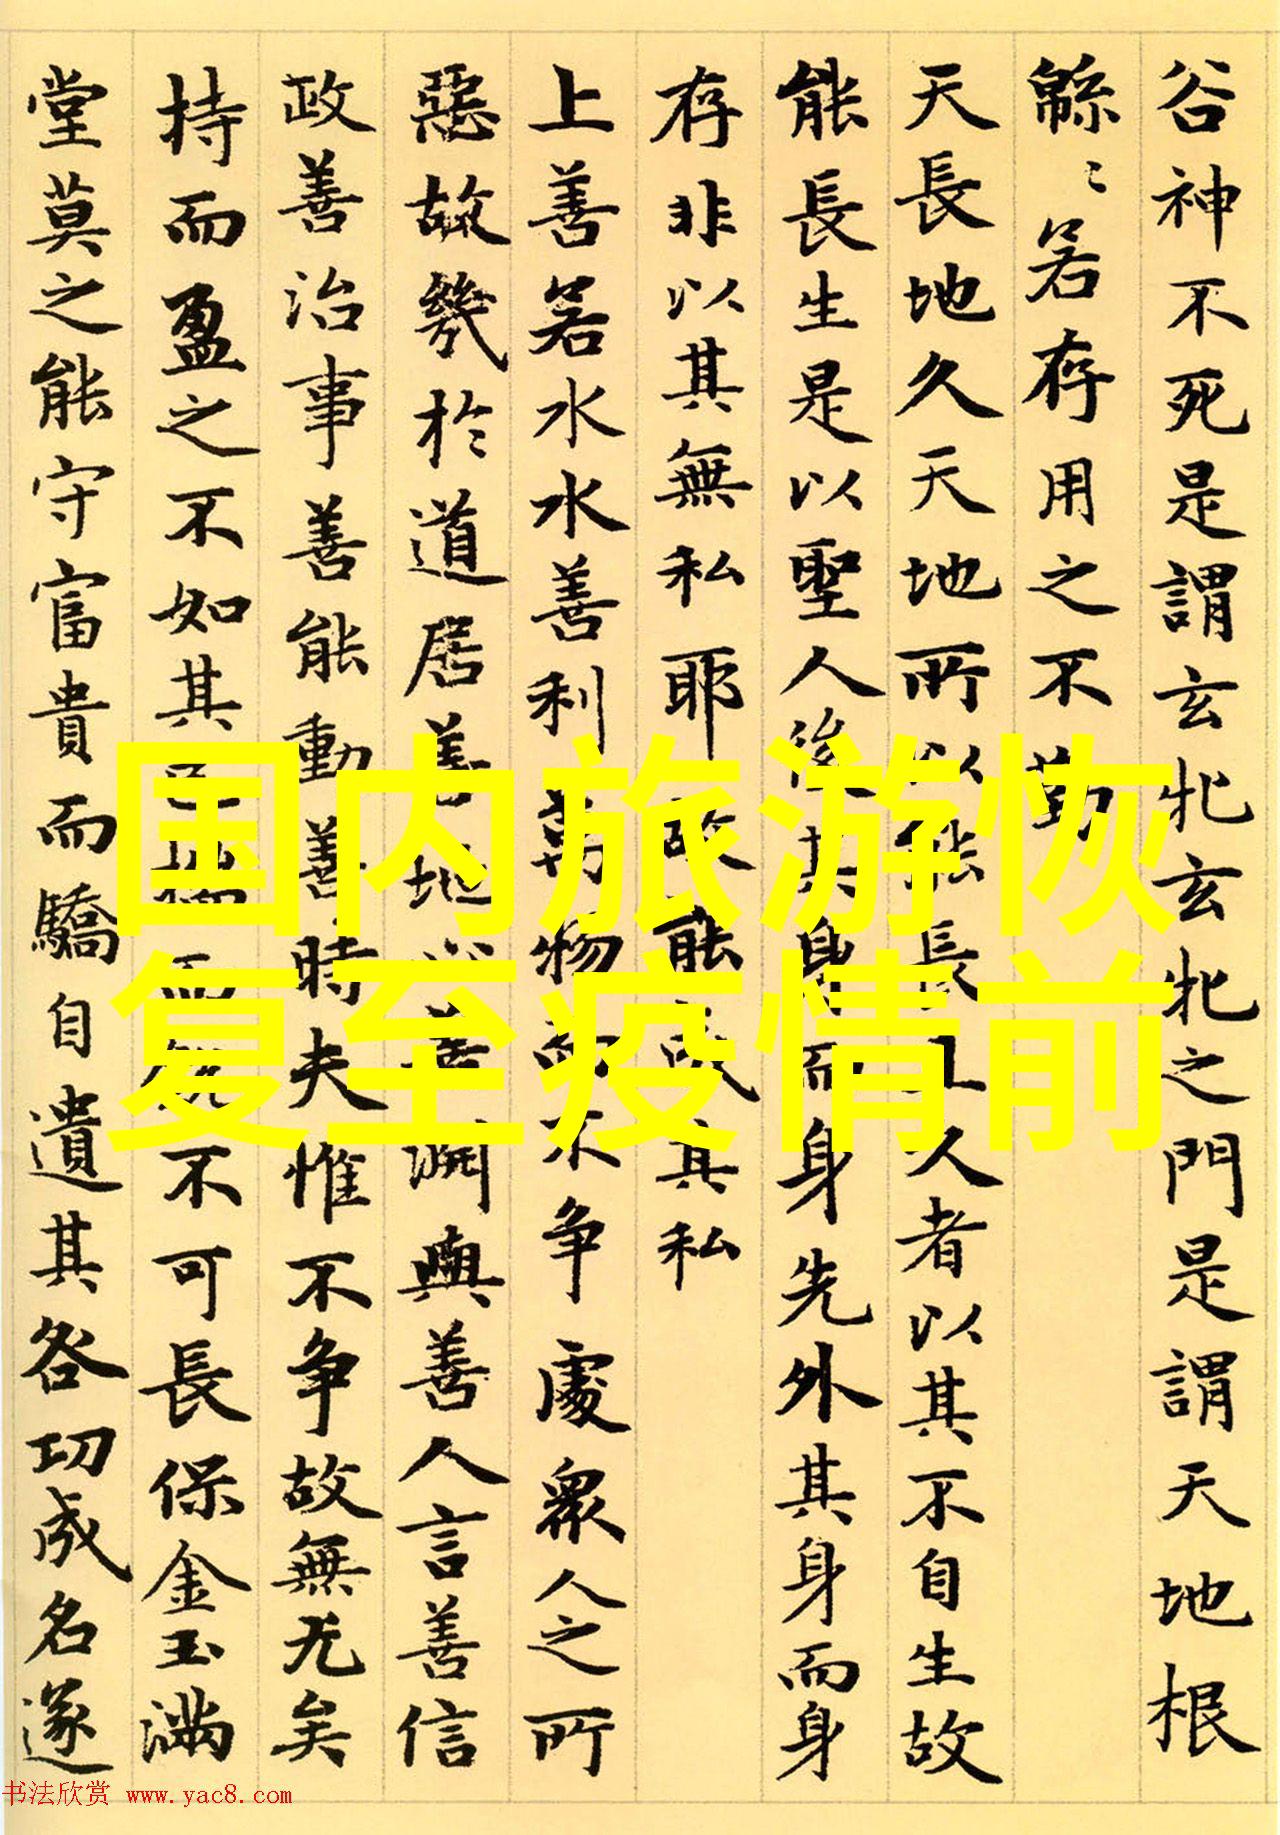 谷神不死是謂玄牝玄牝之門是謂天地根
緜〻若存用之不勤
天長地久天地所以能長且久者以其不自生故
能長生是以聖人後其身而身先外其身而身
存非以其無私耶故能成其私
上善若水水善利萬物而不争處衆人之所
惡故幾於道居善地心善淵與善人言善信
政善治事善能動善時夫惟不争故無尤矣
持而盈之不如其已揣而銳不可長保金玉滿
堂莫之能守富貴而驕自遺其咎功成名遂
国内旅游恢
复至疫情前
书法欣赏 www.yac8.com